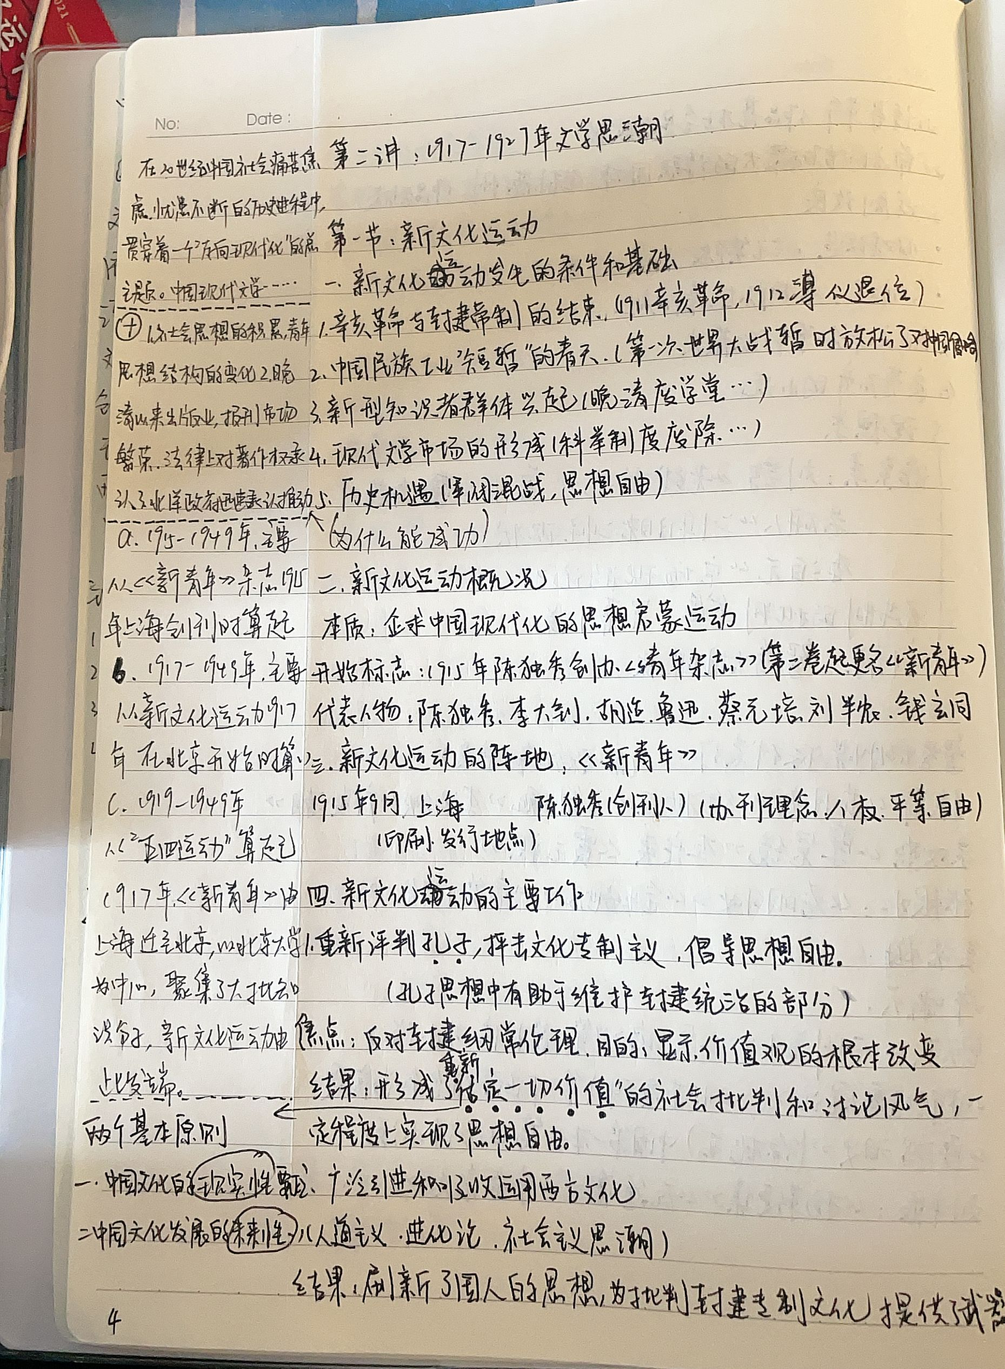 No:
Date:
第二讲：1917-1927年文学思潮
第一节：新文化运动
一.新文化运动发生的条件和基础
1.辛亥革命与封建帝制的结束.(1911辛亥革命,1912溥仪退位)
2.中国民族工业"短暂"的春天.(第一次世界大战暂时放松了对中国侵略
3.新型知识者群体兴起(晚清废学堂…)
4.现代文学市场的形成(科举制度废除…)
5.历史机遇(军阀混战,思想自由)
(为什么能成功)
二.新文化运动概况
本质：企求中国现代化的思想启蒙运动
开始标志:1915年陈独秀创办《青年杂志》(第二卷起更名《新青年》)
代表人物:陈独秀.李大钊.胡适.鲁迅.蔡元培.刘半农.钱玄同
三.新文化运动的阵地:《新青年》
1915年9月.上海 陈独秀(创刊人)(办刊理念:人权.平等.自由)
(印刷.发行地点)
四.新文化运动的主要工作
1.重新评判孔子,抨击文化专制主义,倡导思想自由。
(孔子思想中有助于维护封建统治的部分)
焦点:反对封建纲常伦理.目的:显示价值观的根本改变
结果:形成了"重新估定一切价值"的社会批判和讨论风气,一
定程度上实现了思想自由。
2、广泛引进和吸收运用西方文化
(人道主义.进化论.社会主义思潮)
结果:刷新了国人的思想,为批判封建专制文化提供了武器
在20世纪中国社会痛苦焦
虑.忧患不断的历史进程中,
贯穿着一个"方向现代化"的总
主题。中国现代文学……
(+)1.社会思想的积累,青年
思想结构的变化2.晚
清以来出版业,报刊市场
繁荣.法律上对著作权承
认3.北洋政府
a.1915-1949年,主要
从《新青年》杂志1915
年上海创刊时算起
b.1917-1949年,主要
从新文化运动1917
年在北京开始时算
C.1919-1949年
从"五四运动"算起
1917年《新青年》由
上海迁至北京,以北京大学
为中心,聚集了大批知
识分子,新文化运动由
此发端。
两个基本原则
一.中国文化的现实性
二.中国文化发展的未来性
4